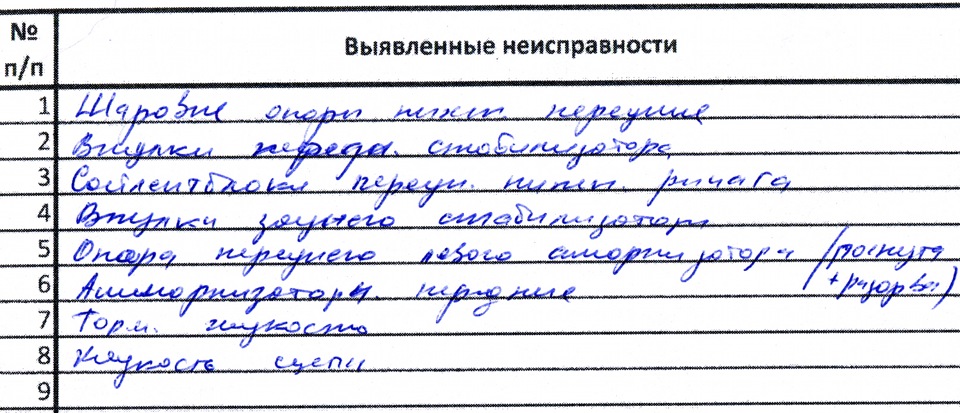 № п/п
Выявленные неисправности
1 Шаровые опоры нижн. передние
2 Втулки передн. стабилизатора
3 Сайлентблоки передн. нижн. рычага
4 Втулки заднего стабилизатора
5 Опора переднего левого амортизатора (погнута
+ разорвана)
6 Аммортизаторы передние
7 Торм. жидкость
8 Жидкость сцепл
9